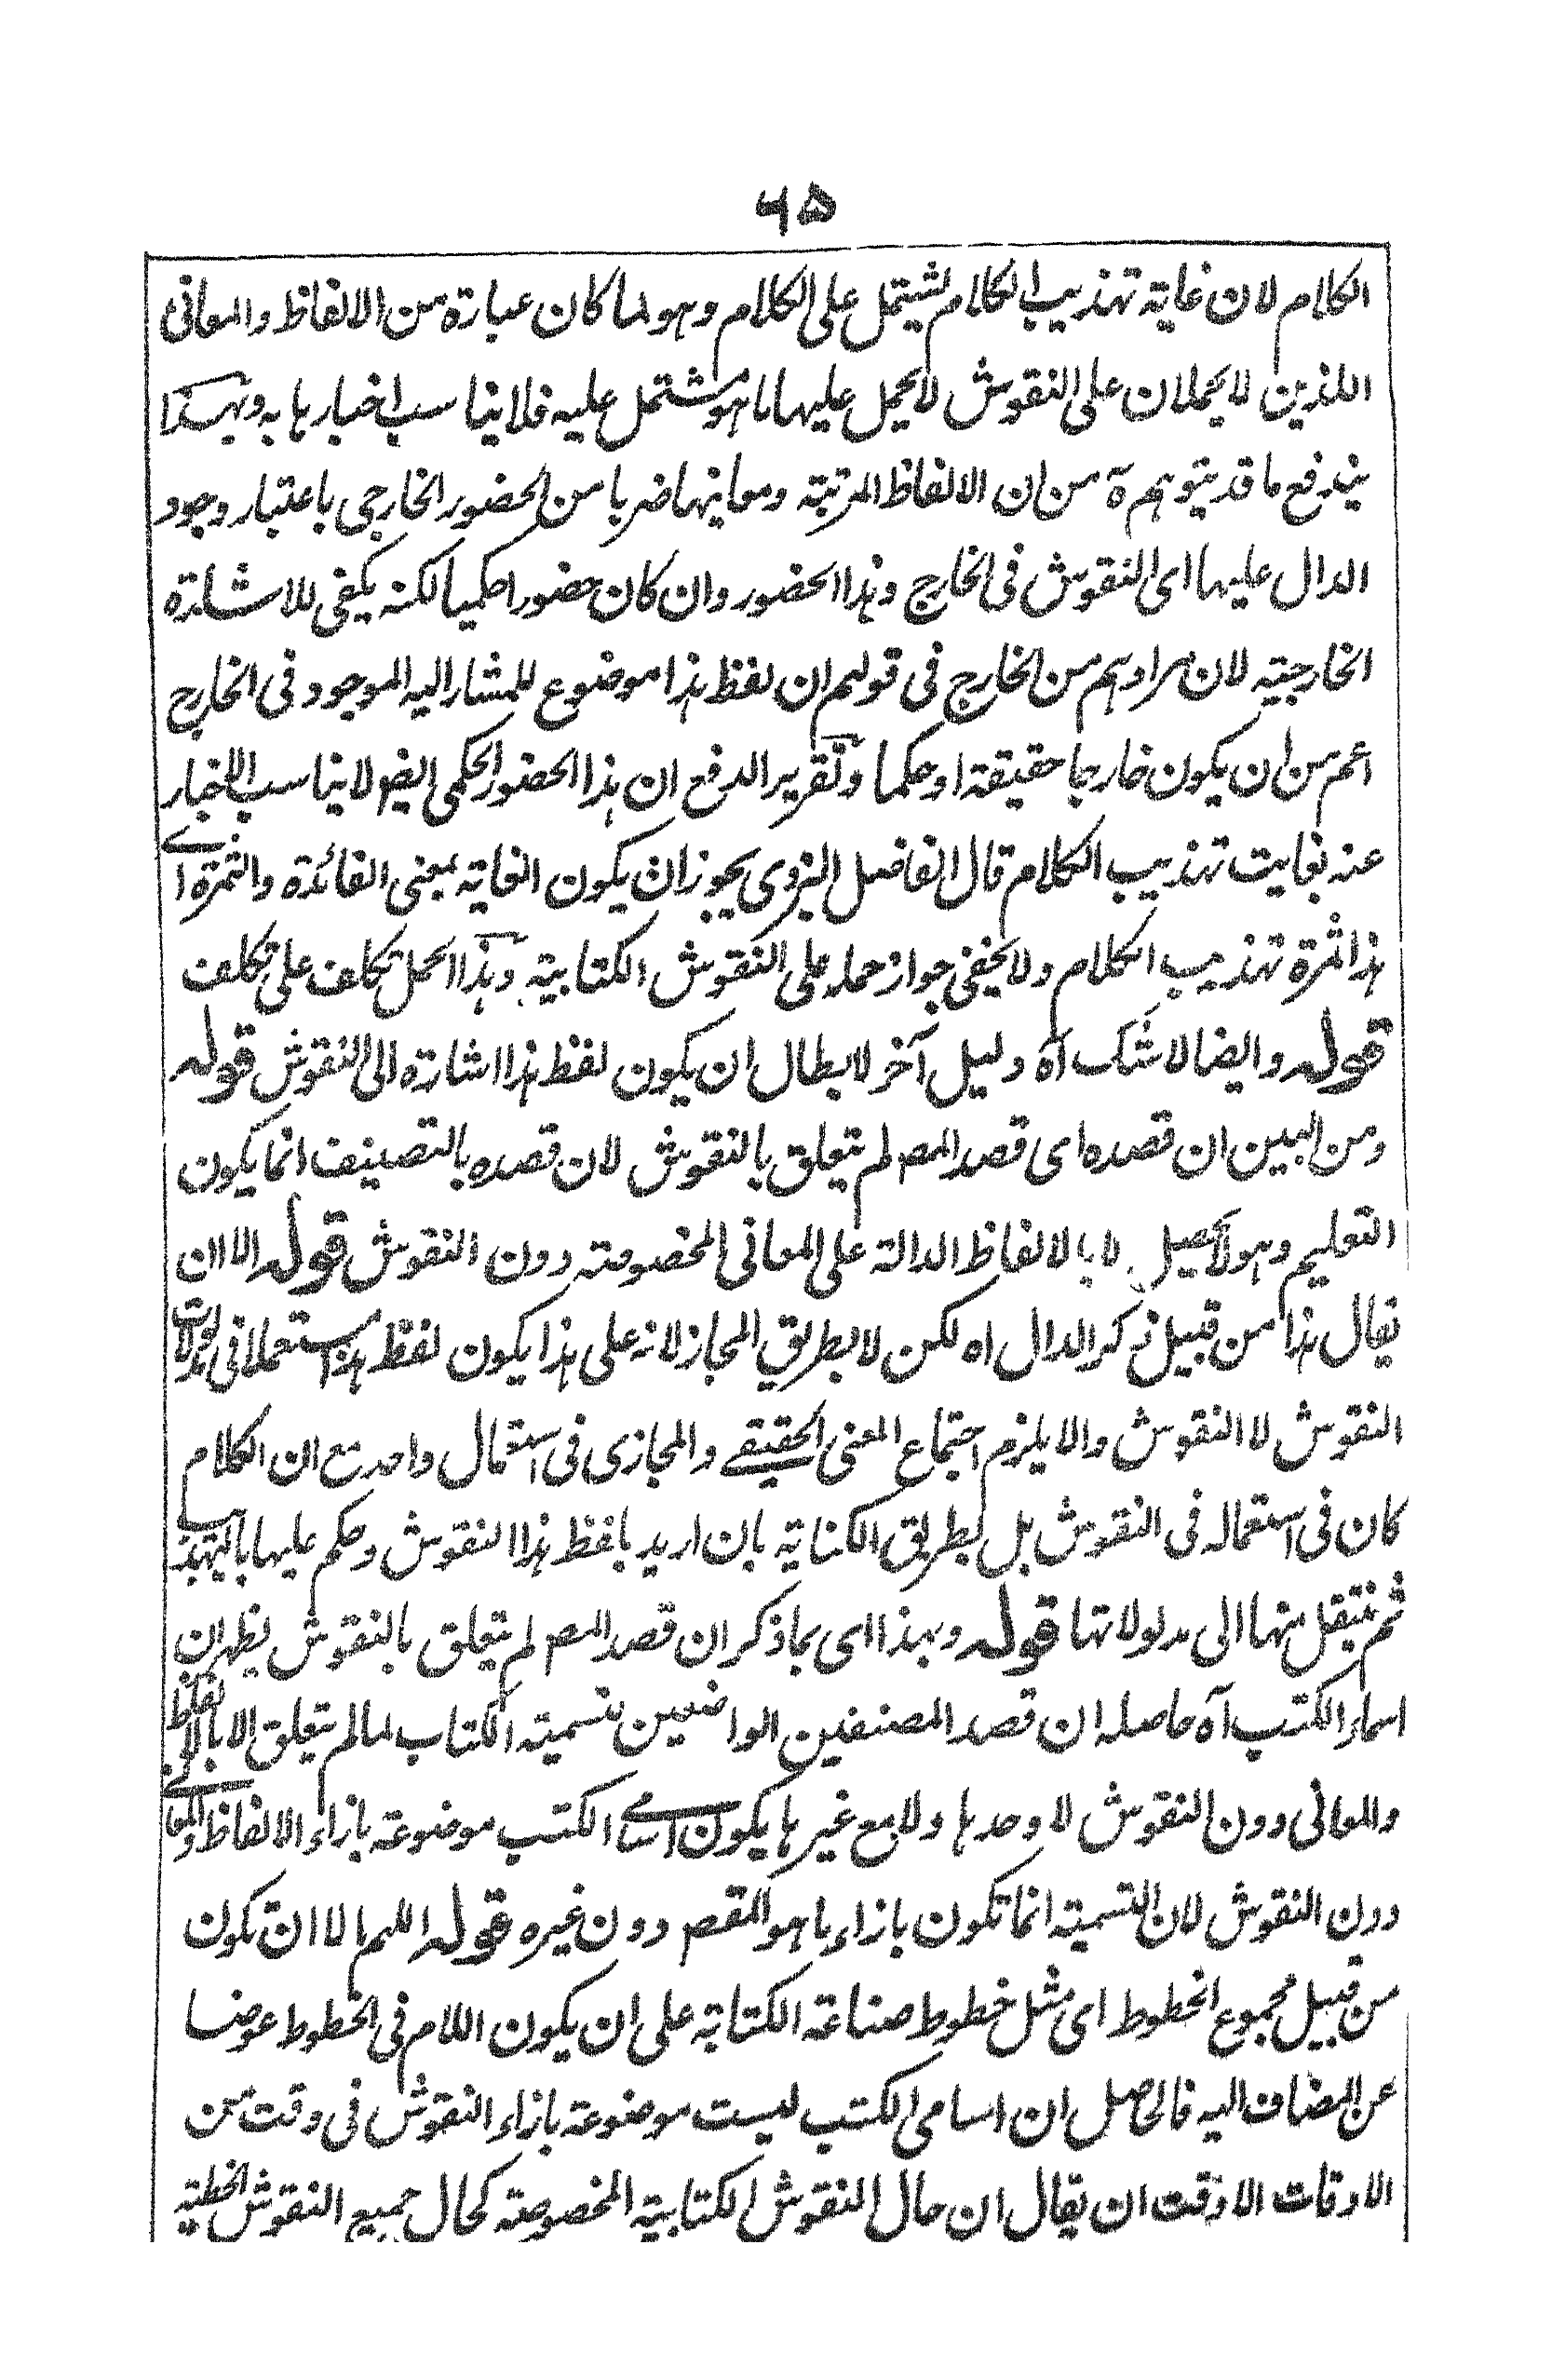 ٦٥
الكلام لان غاية تهذيب الكلام يشتمل على الكلام وهو لما كان عبارة من الالفاظ والمعانى
اللذين لا يحملان على النقوش لا يحمل عليها ما هو مشتمل عليه فلا يناسب اخبارها به وبهذا
يندفع ما قد يتوهم ة من ان الالفاظ المرتبة ومعانيها ضربا من الحضور الخارجى باعتبار وجود
الدال عليها اى النقوش فى الخارج وهذا الحضور وان كان حضورا حكميا لكنه يكفى للاشارة
الخارجية لان مرادهم من الخارج فى قولهم ان لفظ هذا موضوع للمشار اليه الموجود فى الخارج
اعم من ان يكون خارجا حقيقة او حكما وتقرير الدفع ان هذا الحضور الحكمى ايضا لا يناسب الاخبار
عنه بغايت تهذيب الكلام قال الفاضل اليزدى يجوز ان يكون الغاية بمعنى الفائدة والثمرة اے
هذا ثمرة تهذيب الكلام ولا يخفى جواز حمله على النقوش الكتابية وهذا الحمل تكلف على تكلف
قوله وايضا لا شك آه دليل آخر لابطال ان يكون لفظ هذا اشارة الى النقوش قوله
ومن البين ان قصده اى قصد المصـ لم يتعلق بالنقوش لان قصده بالتصنيف انما يكون
التعليم وهو لا يحصل الا بالالفاظ الدالة على المعانى المخصوصة دون النقوش قوله الا ان
يقال هذا من قبيل ذكر الدال اه لكن لا بطريق المجاز لانه على هذا يكون لفظ هذا مستعملا فى مدلولات
النقوش لا النقوش والا يلزم اجتماع المعنى الحقيقے والمجازى فى استعمال واحد مع ان الكلام
كان فى استعماله فى النقوش بل بطريق الكناية بان اريد بلفظ هذا النقوش وحكم عليها بالتهذيب
ثم ينتقل منها الى مدلولاتها قوله وبهذا اى بما ذكر ان قصد المصـ لم يتعلق بالنقوش يظهر ان
اسماء الكتب آه حاصله ان قصد المصنفين الواضعين تسمية الكتاب لما لم يتعلق الا بالالفاظ
والمعانى دون النقوش لا وحدها ولا مع غيرها يكون اسامے الكتب موضوعة بازاء الالفاظ والمعانے
دون النقوش لان التسمية انما تكون بازاء ما هو المقصـ دون غيره قوله اللهم الا ان تكون
من قبيل مجموع الخطوط اى مثل خطوط صناعة الكتابة على ان يكون اللام فى الخطوط عوضا
عن المضاف اليه فالحاصل ان اسامى الكتب ليست موضوعة بازاء النقوش فى وقت من
الاوقات الا وقت ان يقال ان حال النقوش الكتابية المخصوصة كحال جميع النقوش الخطية